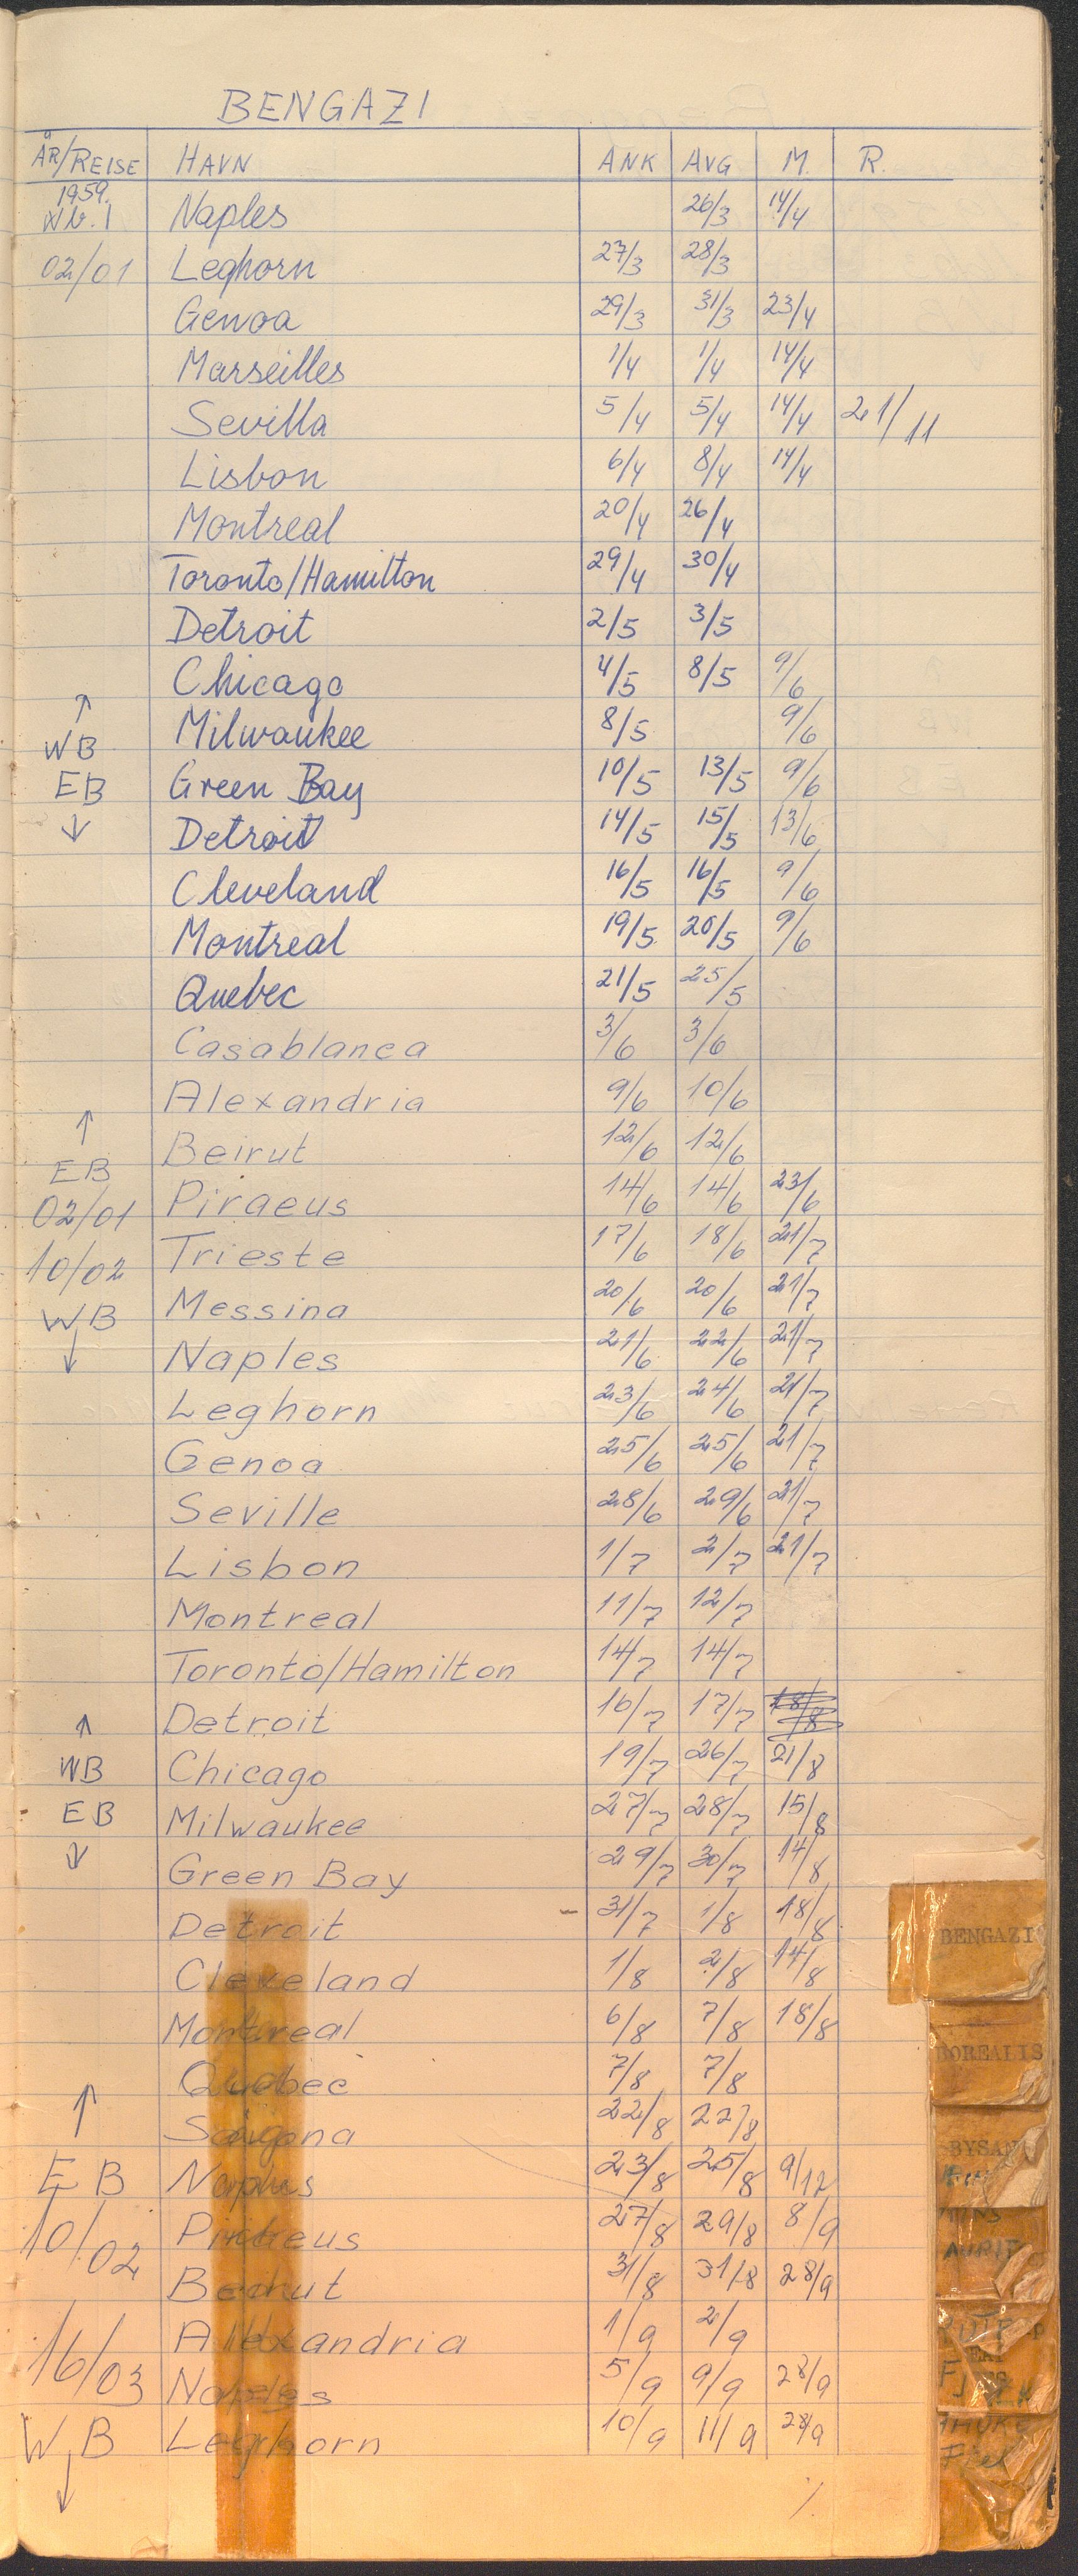 BENGAZI
ÅR/REISE HAVN ANK AVG M. R.
1959.
Wb. 1 Naples 26/3 14/4
02/01 Leghorn 27/3 28/3
Genoa 29/3 31/3 23/4
Marseilles 1/4 1/4 14/4
Sevilla 5/4 5/4 14/4 21/11
Lisbon 6/4 8/4 14/4
Montreal 20/4 26/4
Toronto/Hamilton 29/4 30/4
Detroit 2/5 3/5
Chicago 4/5 8/5 9/6
↑
WB Milwaukee 8/5 9/6
EB Green Bay 10/5 13/5 9/6
↓ Detroit 14/5 15/5 13/6
Cleveland 16/5 16/5 9/6
Montreal 19/5 20/5 9/6
Quebec 21/5 25/5
Casablanca 3/6 3/6
Alexandria 9/6 10/6
↑ Beirut 12/6 12/6
EB
02/01 Piraeus 14/6 14/6 23/6
10/02 Trieste 17/6 18/6 21/7
WB Messina 20/6 20/6 21/7
↓ Naples 21/6 22/6 21/7
Leghorn 23/6 24/6 21/7
Genoa 25/6 25/6 21/7
Seville 28/6 29/6 21/7
Lisbon 1/7 2/7 21/7
Montreal 11/7 12/7
Toronto/Hamilton 14/7 14/7
↑ Detroit 16/7 17/7 18/8
WB Chicago 19/7 26/7 21/8
EB Milwaukee 27/7 28/7 15/8
↓ Green Bay 29/7 30/7 14/8
Detroit 31/7 1/8 18/8
Cleveland 1/8 2/8 14/8
Montreal 6/8 7/8 18/8
Quebec 7/8 7/8
↑ 22/8 22/8
EB 23/8 25/8 9/12
10/02 Piraeus 27/8 29/8 8/9
Beirut 31/8 31/8 28/9
Alexandria 1/9 2/9
16/03 Naples 5/9 9/9 28/9
WB Leghorn 10/9 11/9 28/9
↓
/.
BENGAZI
BOREALIS
BYSAN